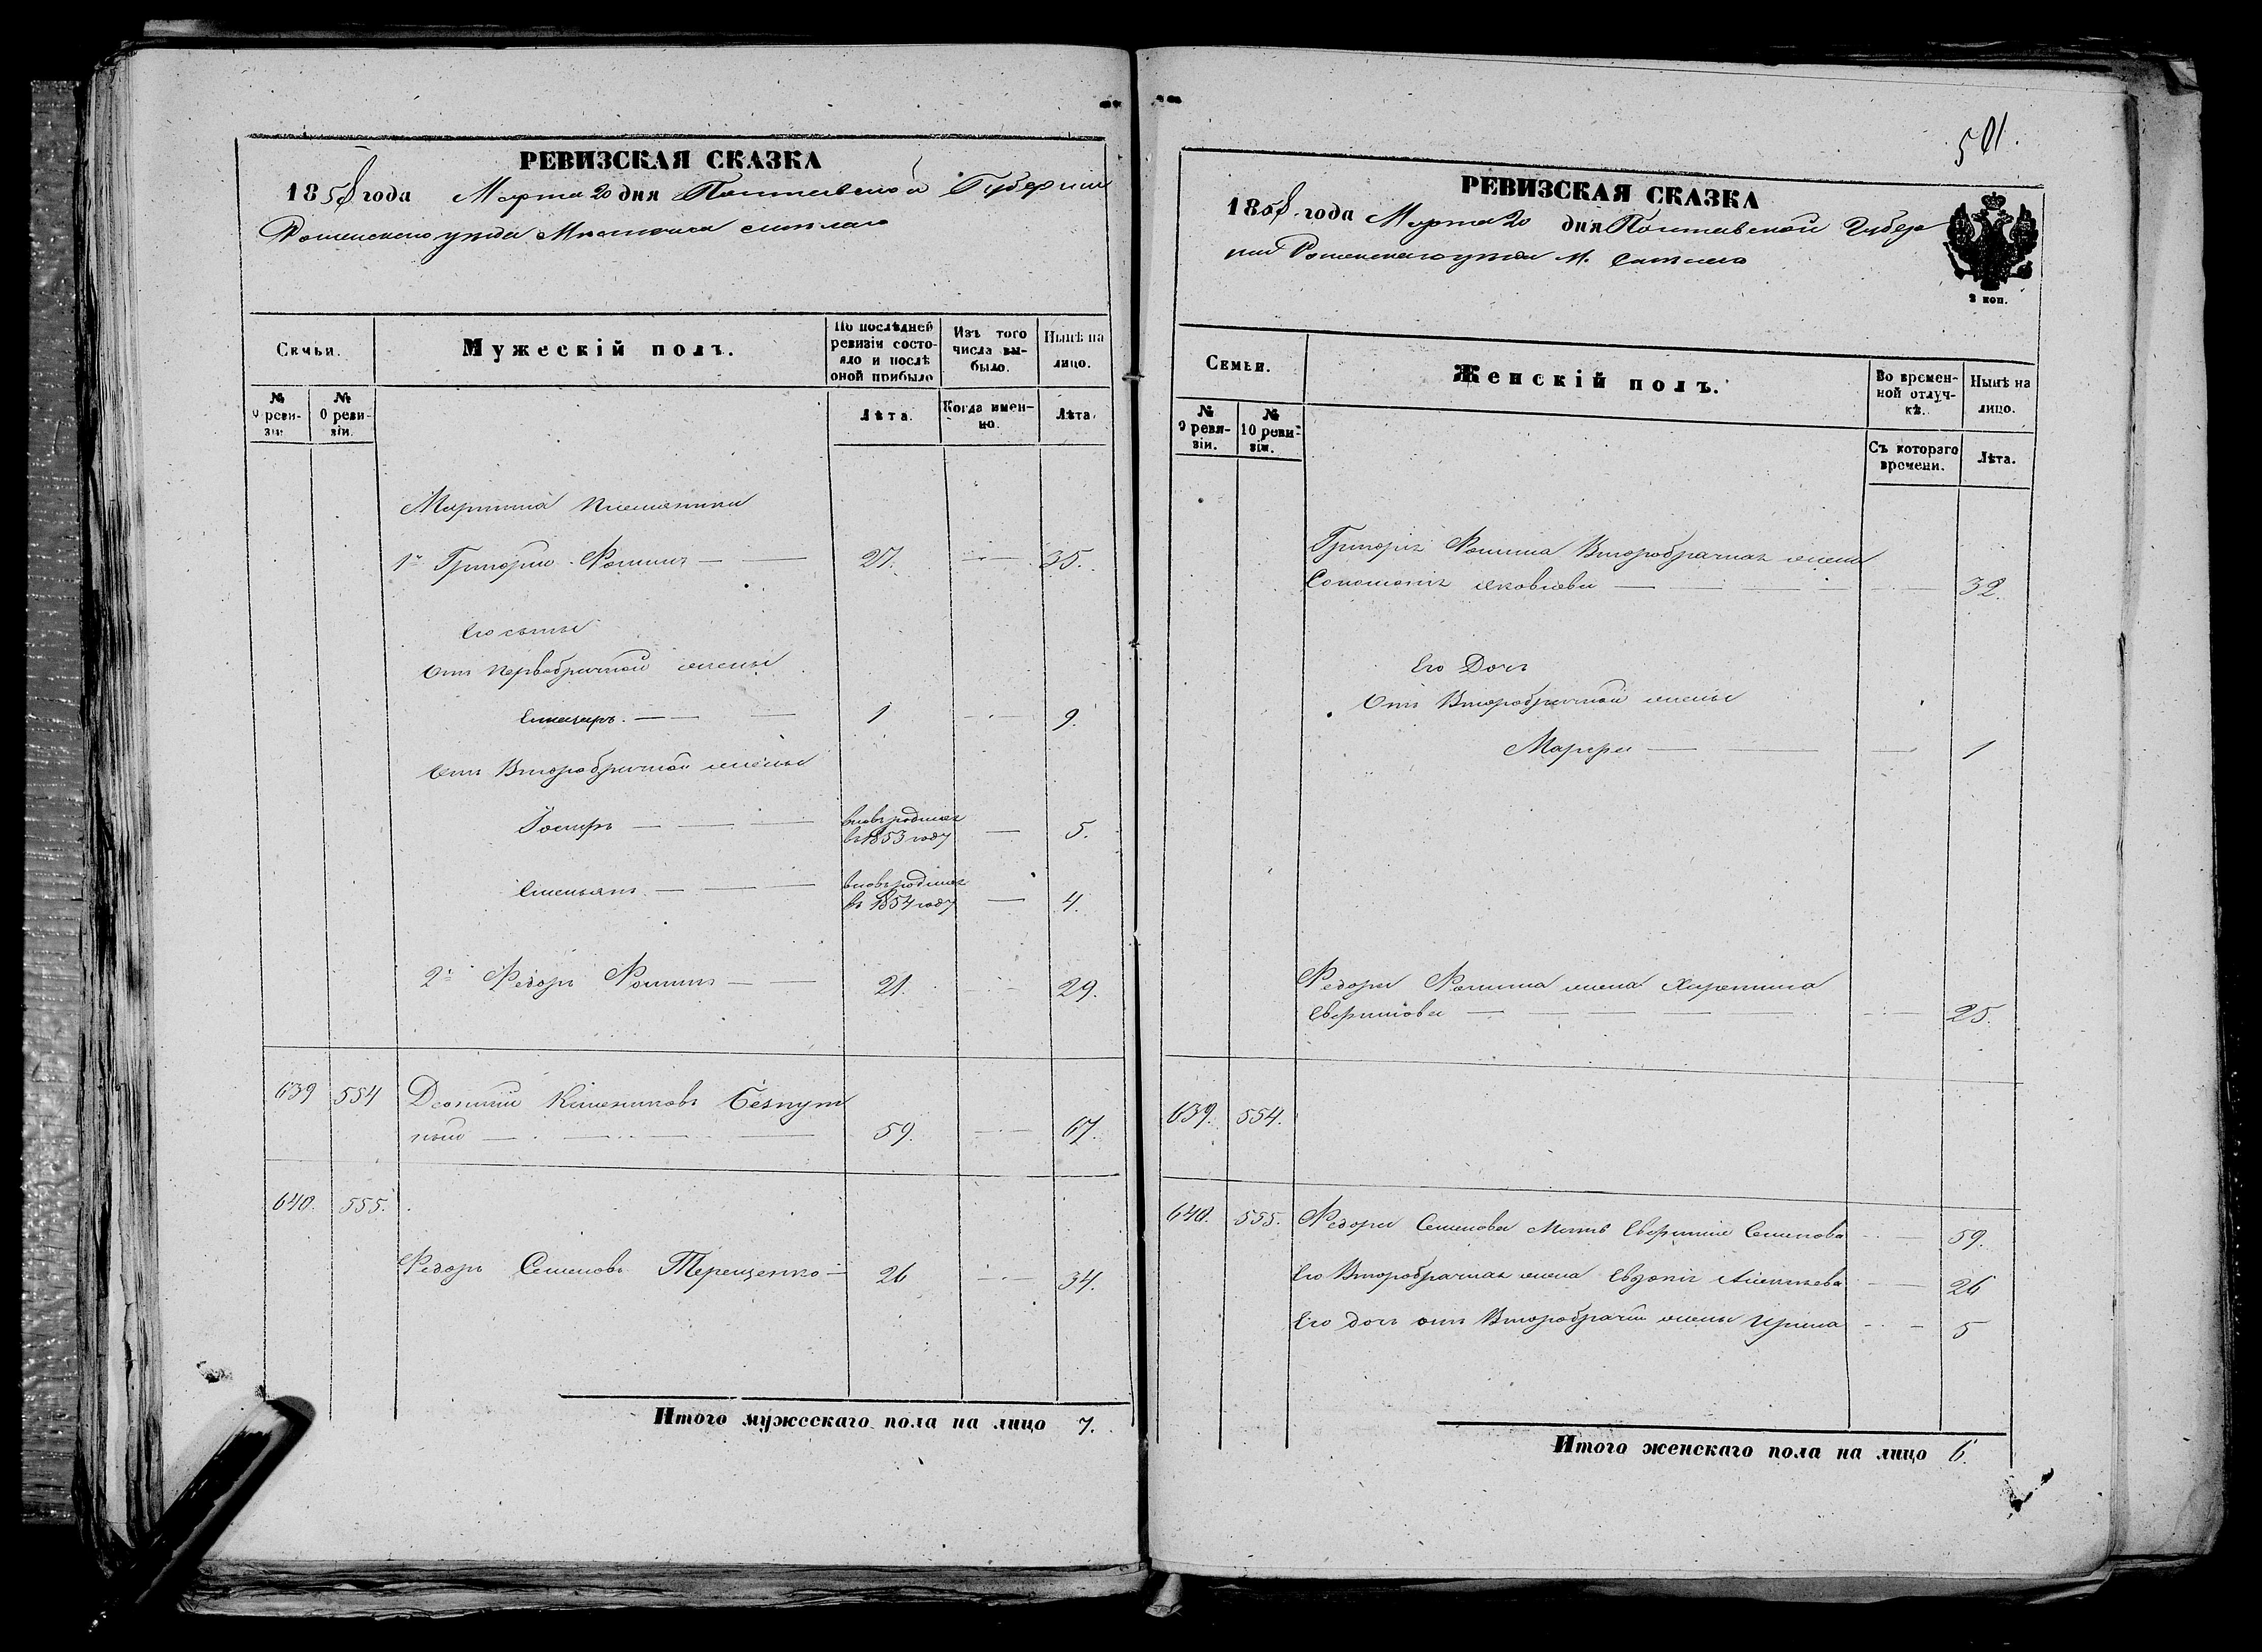 РЕВИЗСКАЯ СКАЗКА
1858 года Марта 20 дня Полтавской Губернии
Роменского уезда Местечка Смелаго
Семьи.
Мужескій полъ.
По послѣдней ревизіи состояло и послѣ оной прибыло
Изъ того числа выбыло.
Нынѣ на лицо.
№ 9 ревизіи.
№ 10 ревизіи.
Лѣта.
Когда именно.
Лѣта.
Мартина племянники
1й Григорій Фоминъ 27. 35.
Его сыны
Отъ первобрачной жены
Елиазаръ. 1 9.
Отъ Второбрачной жены
Іосифъ вновь родился въ 1853 году 5.
Емельянъ вновь родился въ 1854 году 4.
2й Федоръ Фоминъ 21. 29.
639 554
ный 59. 67.
640. 555.
Федоръ Семеновъ Терещенко 26 34.
Итого мужескаго пола на лицо 7.
501.
РЕВИЗСКАЯ СКАЗКА
1858 года Марта 20 дня Полтавской Губер
ніи Роменского уезда М. Смелаго
2 коп.
Семьи.
Женскій полъ.
Во временной отлучкѣ.
Нынѣ на лицо.
№ 9 ревизіи.
№ 10 ревизіи.
Съ котораго времени.
Лѣта.
Григорія Фомина Второбрачная жена
Соломонія Яковлева 32.
Его Дочь
Отъ Второбрачной жены
Марфа 1
Федора Фомина жена Харитина
25.
639. 554.
640. 555. Федора Семенова Мать Семенова 59.
Его Второбрачная жена Евдокія 26
Его дочь отъ Второбрачной жены Ирина 5
Итого женскаго пола на лицо 6.